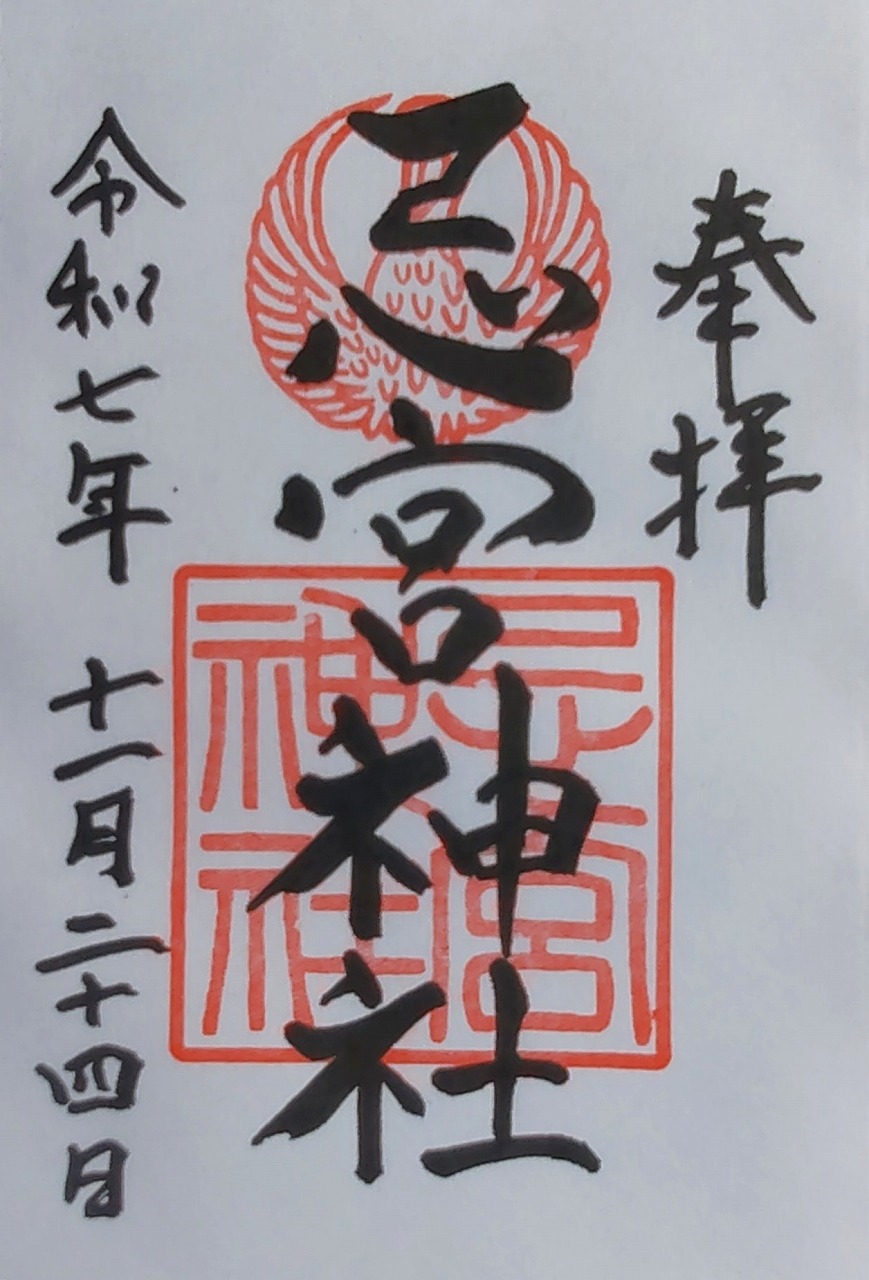 奉拝
忌宮神社
忌宮神社
令和七年 十一月二十四日